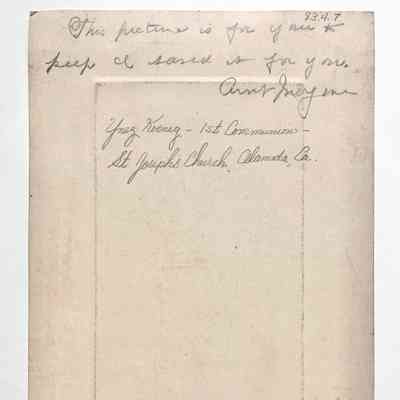 93.4.7
This picture is for you to
keep I saved it for you.
Aunt Imogene
Ynez Keeney - 1st Communion -
St Josephs Church, Alameda, Ca.